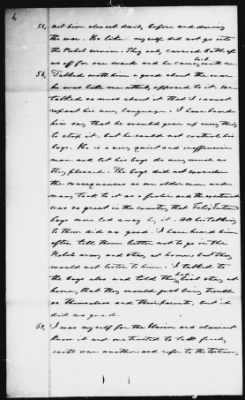 6
53, met him almost daily, before and during
the war. He like myself did not go into
the Rebel service. They only carried both of
us off for one week and he came back with me
54, Talked with him a good about the war
he was like me utterly opposed to it. We
talked so much about it that I cannot
repeat his very language. I have heard
him say that he would give up any thing
to stop it, but he could not control his
boys. He is a very quiet and inoffensive
man and let his boys do very much as
they pleased. The boys did not consider
the consequences as an older man and
many took to it as a frolic and the excitement
was so great in the county, that
boys were led away by it. All his talking
to them did no good. I have heard him
often tell them better not to go in the
Rebel army and stay at home but they
would not listen to him. I talked to
the boys also and told they had best stay at
home, that they would just bring trouble
on themselves and their parents, but it
did no good.
60, I was myself for the Union and claimant
knew it and we trusted to talk freely
with one another and refer to the